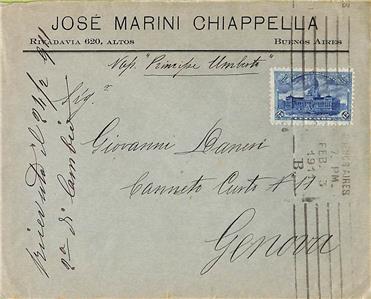 JOSÉ MARINI CHIAPPELLA
RIVADAVIA 620, ALTOS BUENOS AIRES
Vap. "Principe Umberto"
Sig.
Giovanni Danesi
Canneto Curto N 17
Genova
ricevuta il 24/2
2ª di cambio
AIRES
FEB 3
PM.
191